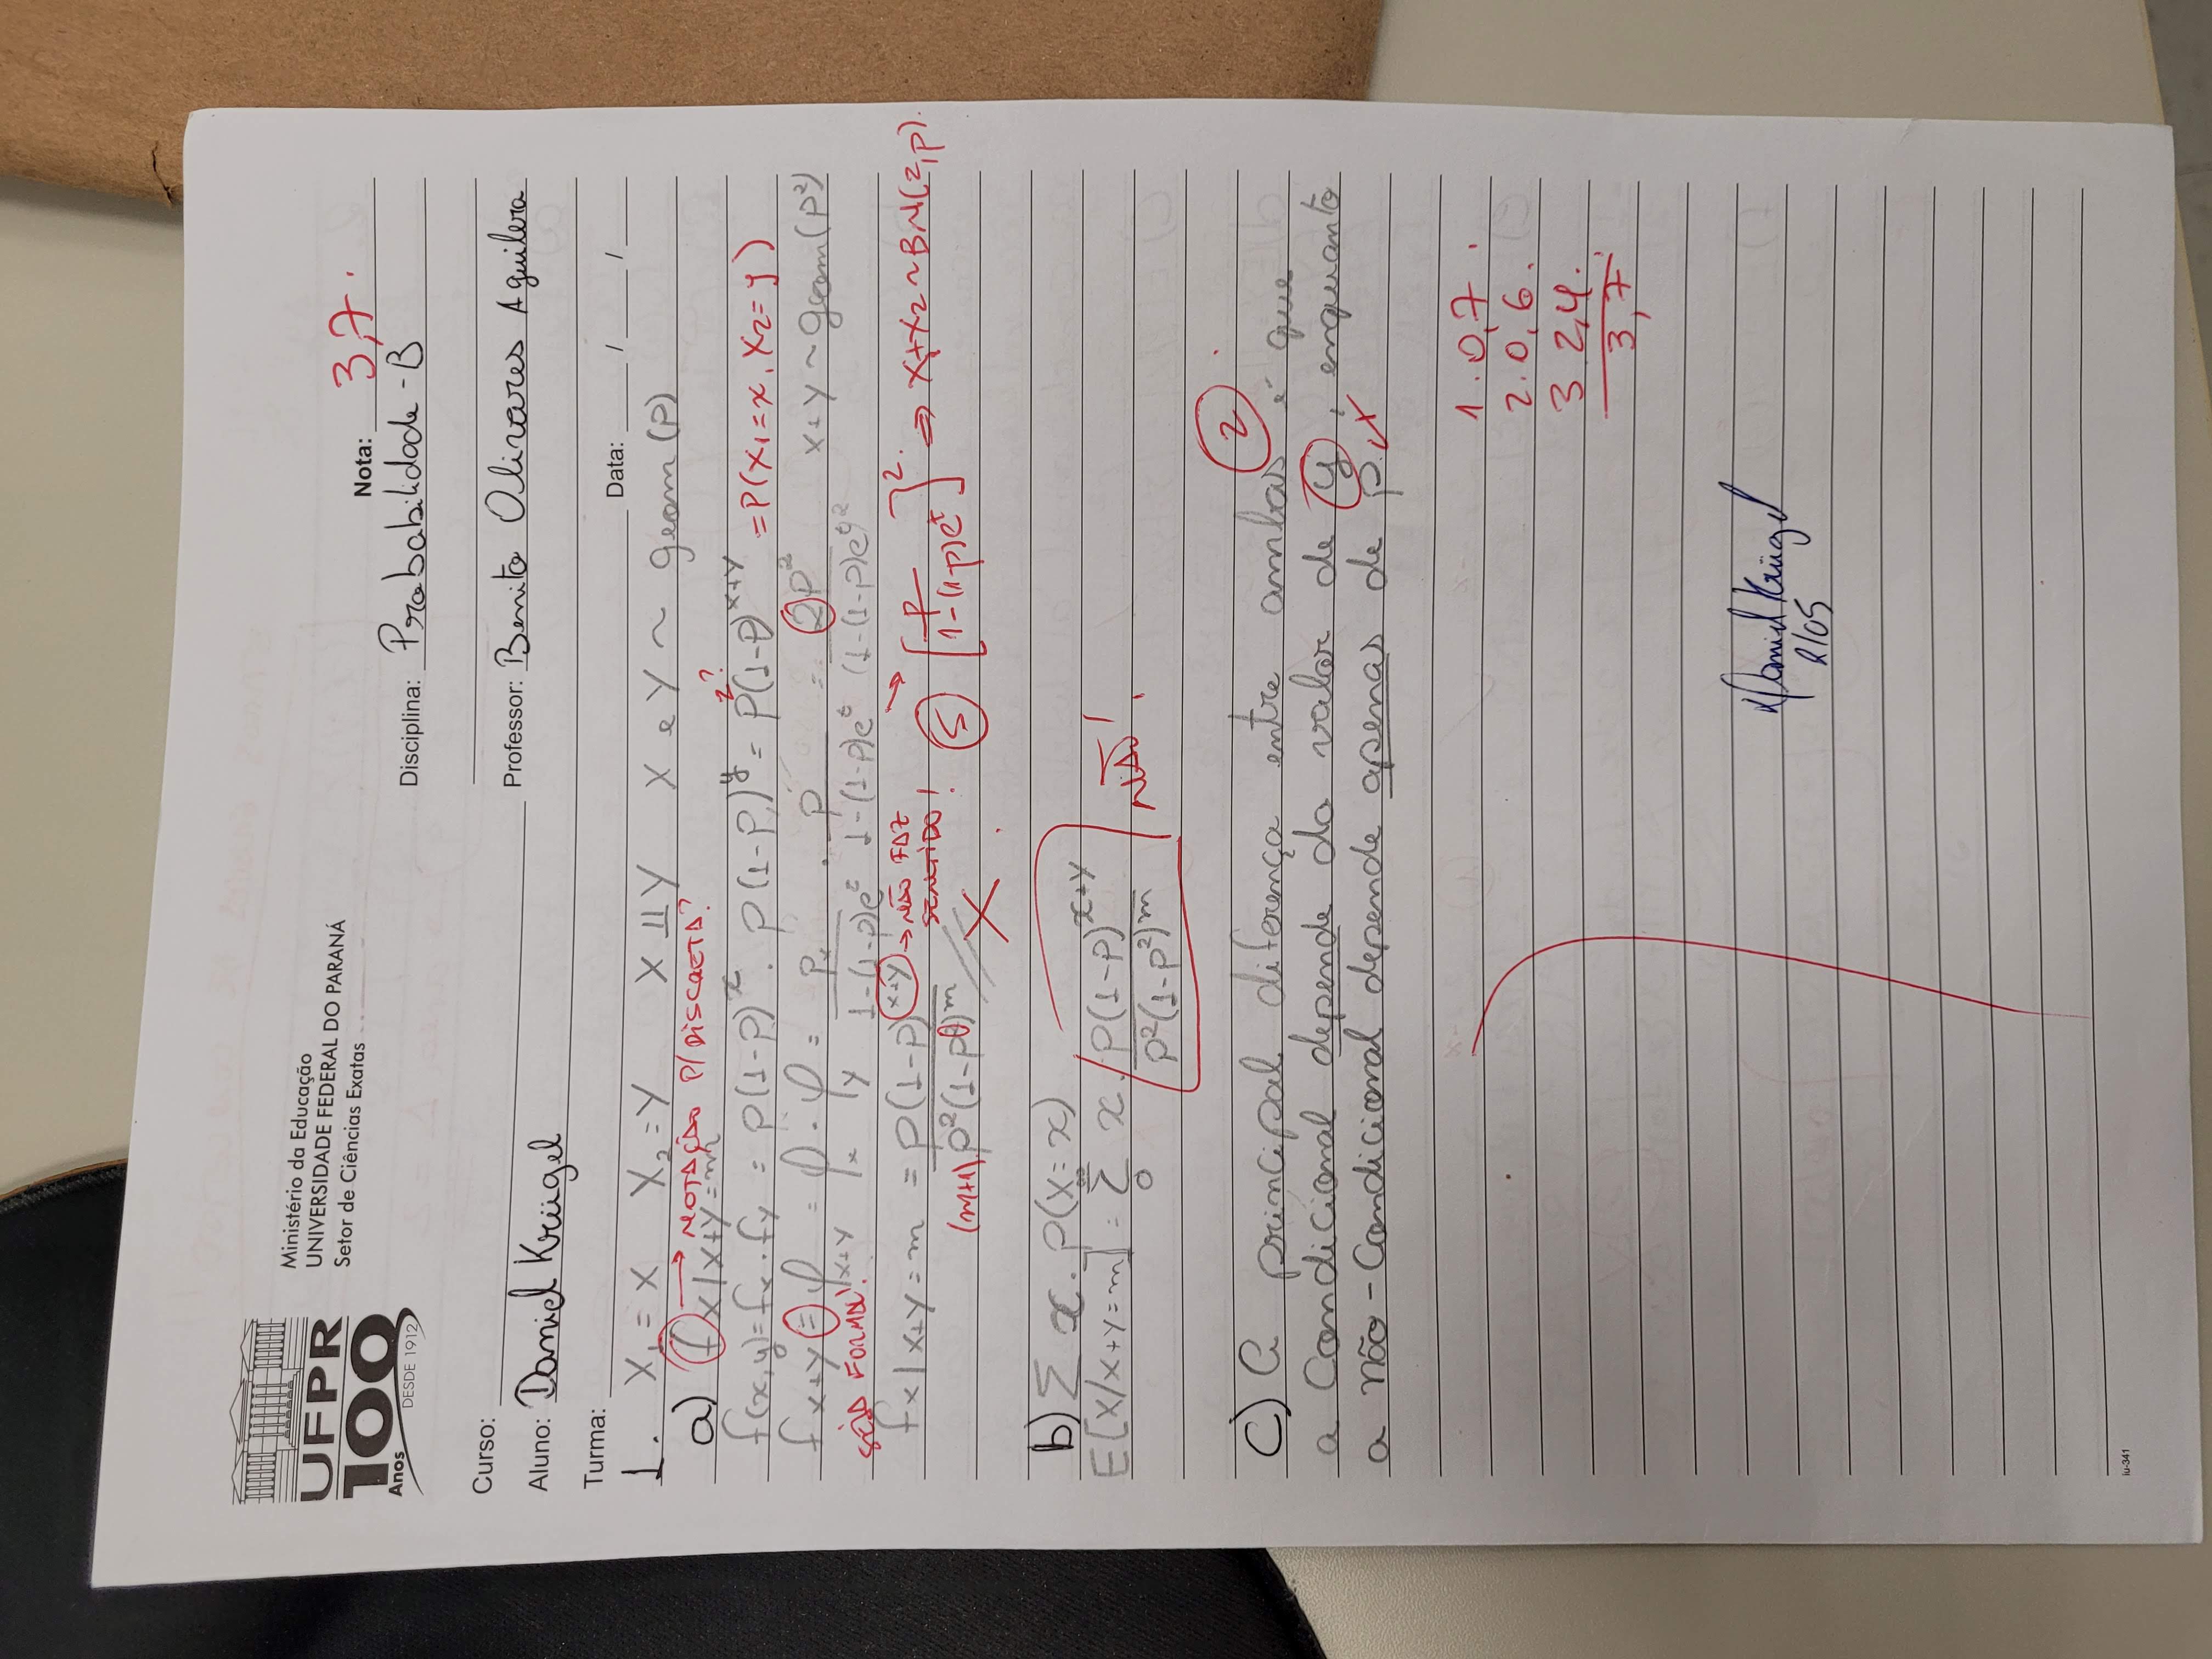 UFPR
100
Anos
DESDE 1912
Ministério da Educação
UNIVERSIDADE FEDERAL DO PARANÁ
Setor de Ciências Exatas
Nota: 3,7.
Disciplina: Probabilidade - B
Curso:
Professor: Benito Olivares Aguilera
Aluno: Daniel Krügel
Turma:
Data: / /
1. X₁ = X X₂ = Y X ⫫ Y X e Y ~ geom (p)
a) f x|x+y=m → NOTAÇÃO P/ DISCRETA?
f(x,y)=fx . fy = p(1-p)^x . p(1-p)^y = p(1-p)^x+y 2? = P(X₁=x, X₂=y)
f x+y = φ x+y = φx . φy = p/(1-(1-p)e^t) . p/(1-(1-p)e^t) = 2p²/(1-(1-p)e^t)² x+y ~ geom(p²)
SEJA FORMAL!
f x|x+y=m = p(1-p)^x+y / p²(1-p²)^m → NÃO FAZ SENTIDO!
(m+1)
5 → [p/(1-(1-p)e^t)]² ⇒ X₁+X₂ ~ BN(2,p).
b) Σ x. p(X=x)
E[X/X+Y=m] = Σ 0 ∞ x . p(1-p)^x+y / p²(1-p²)^m NÃO!
2
c) A principal diferença entre ambas é que
a Condicional depende do valor de y, enquanto
a não-Condicional depende apenas de p.
1. 0,7.
2. 0,6.
3 2,4.
3,7
Daniel Krügel
2/05
iu-341